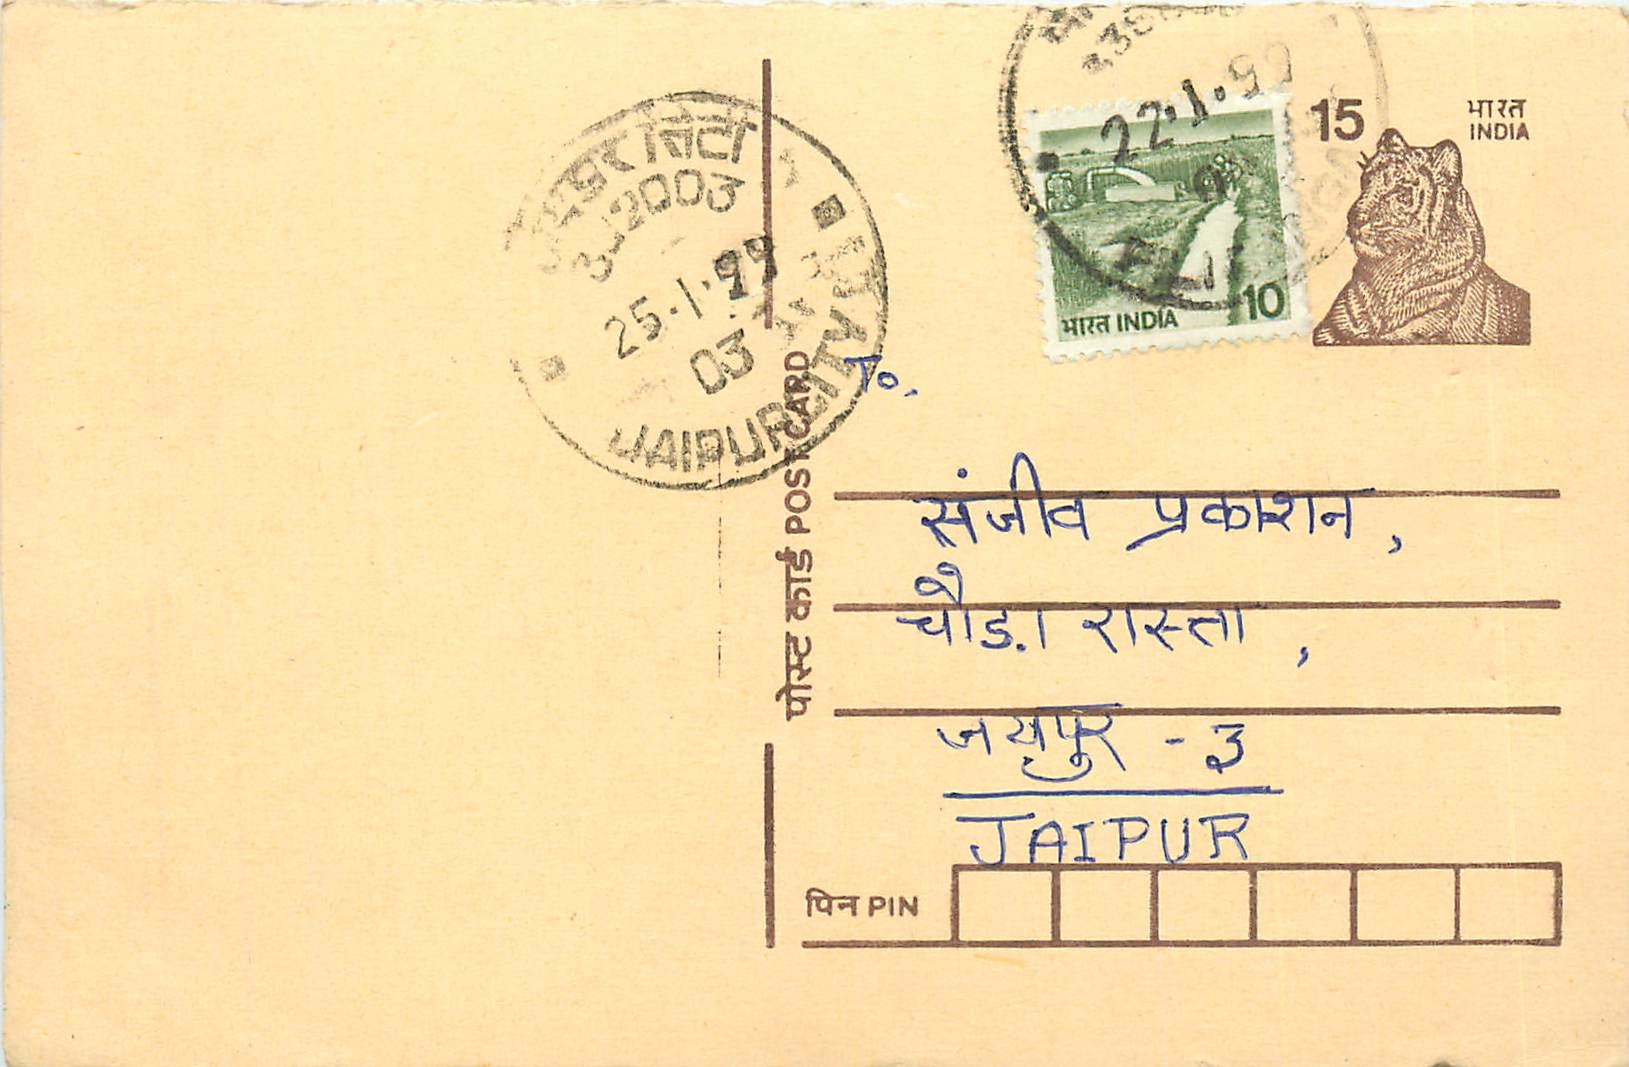 22.1.99
15
भारत
INDIA
भारत INDIA 10
सिटी
2003
25.1.99
03
JAIPUR CITY
पोस्ट कार्ड POST CARD
To.
संजीव प्रकाशन,
चौड़ा रास्ता,
जयपुर - 3
JAIPUR
पिन PIN